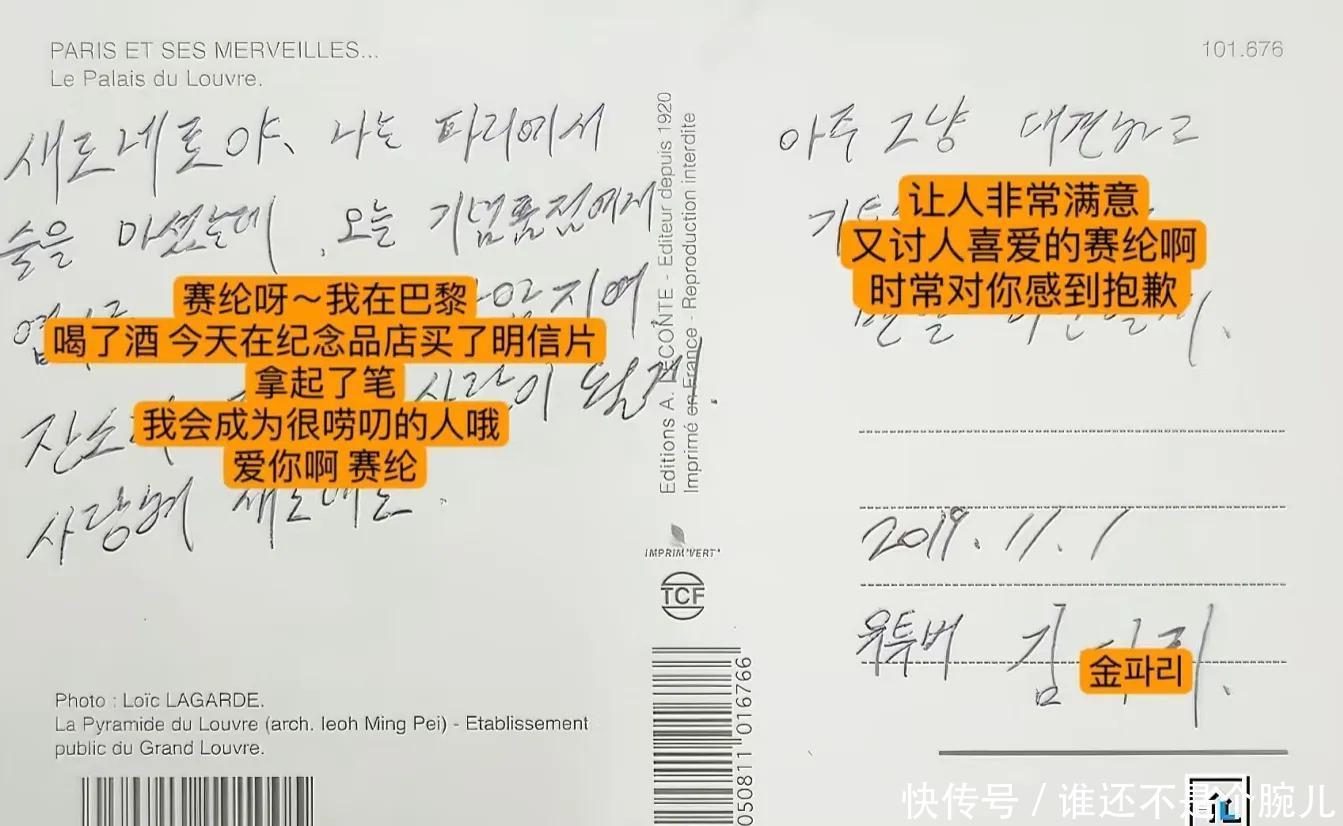 PARIS ET SES MERVEILLES...
Le Palais du Louvre.
101.676
새로네로야, 나는 파리에서
술을 마셨는데, 오늘 기념품점에서
赛纶呀～我在巴黎
喝了酒 今天在纪念品店买了明信片
拿起了笔
我会成为很唠叨的人哦
爱你啊 赛纶
사람이 될게.
사랑해 새로네로.
Photo : Loïc LAGARDE.
La Pyramide du Louvre (arch. Ieoh Ming Pei) - Etablissement
public du Grand Louvre.
Editions A. LECONTE - Editeur depuis 1920
Imprimé en France - Reproduction interdite
IMPRIM'VERT
TCF
050811 016766
아주 그냥 대견하고
让人非常满意
又讨人喜爱的赛纶啊
时常对你感到抱歉
2019.11.1
유튜버 김
金파리
快传号 / 谁还不是个腕儿